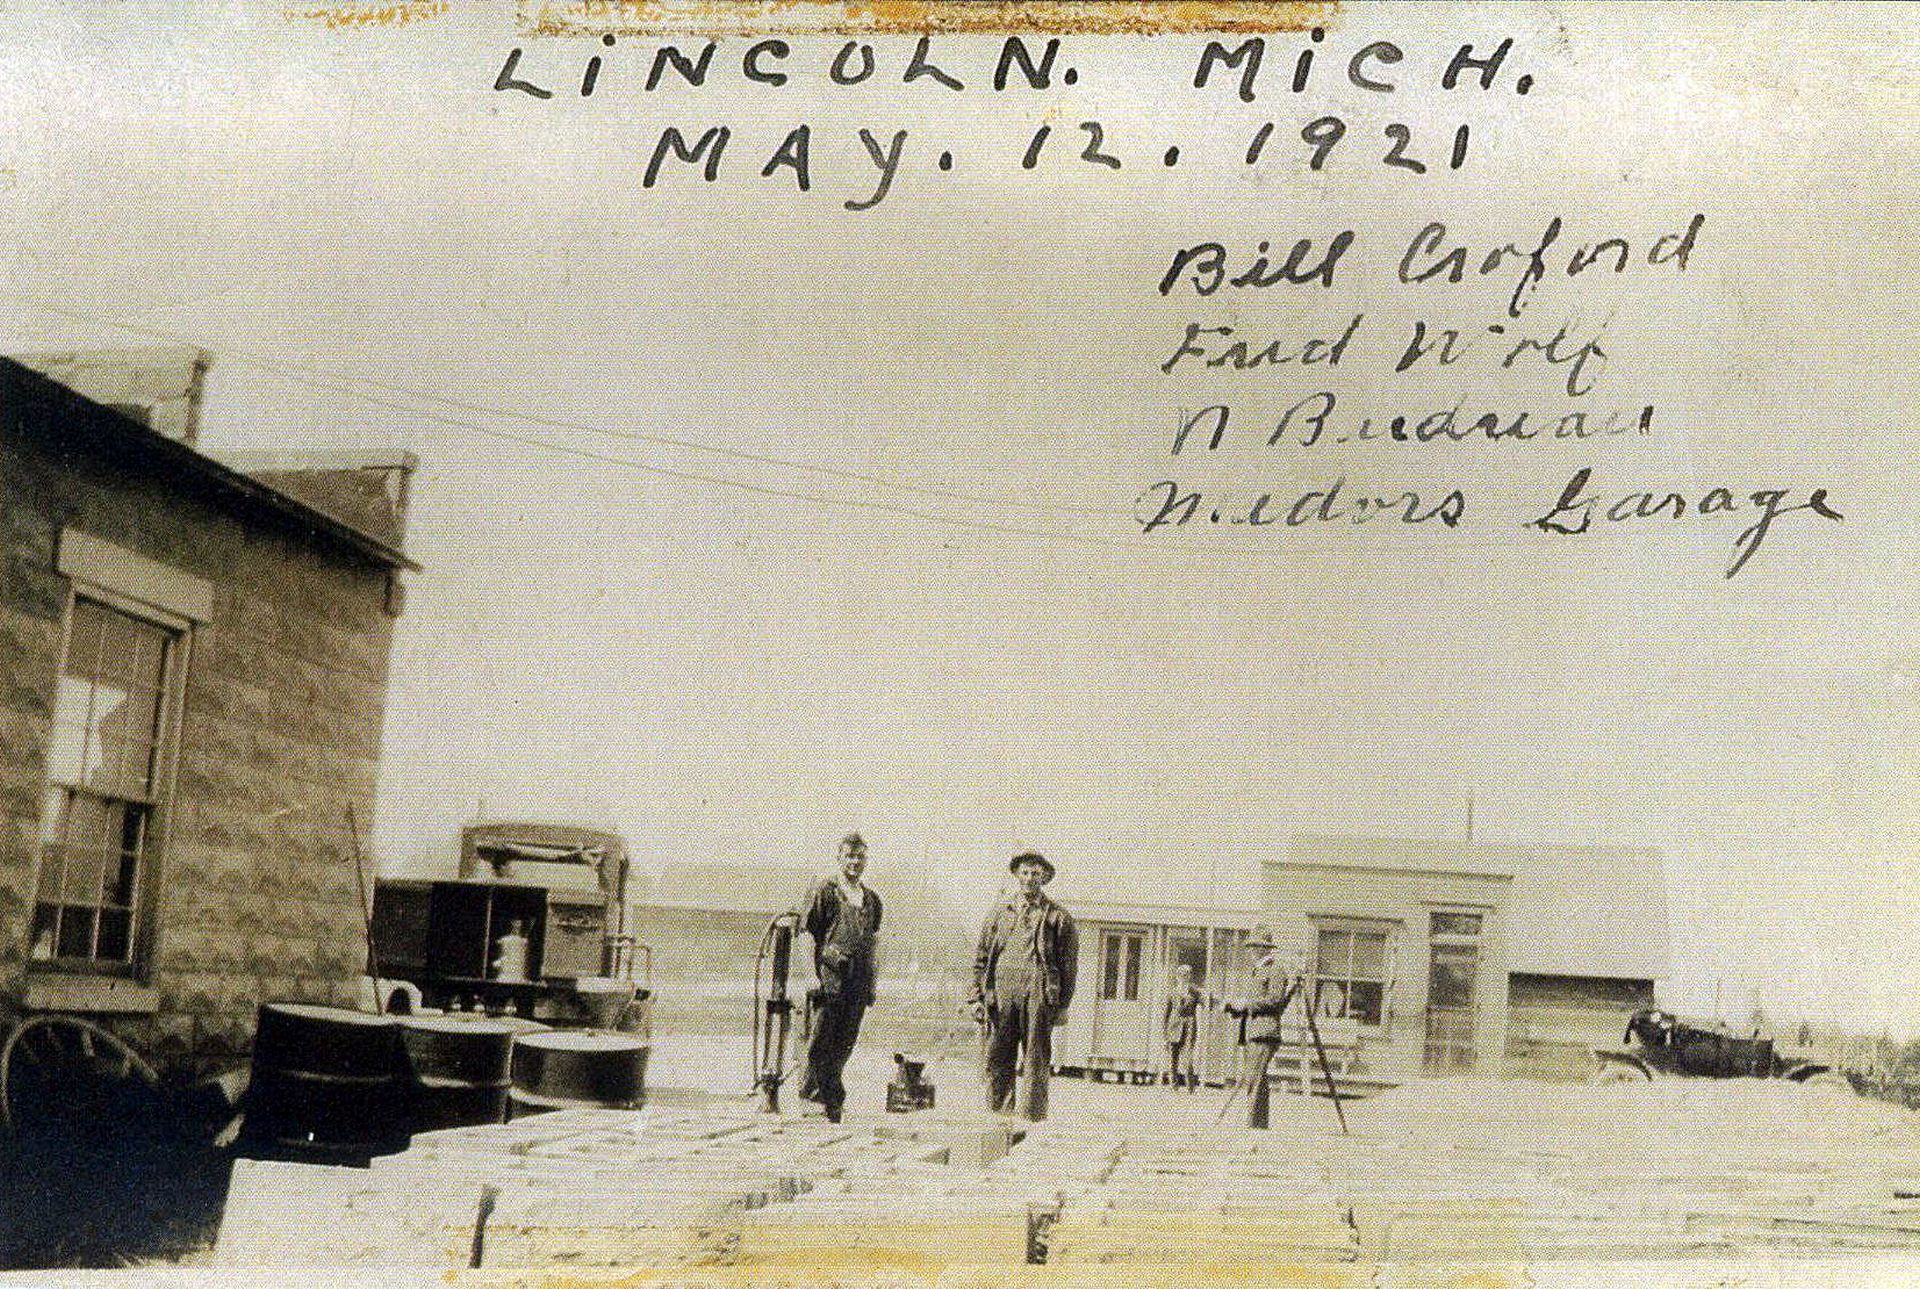 LiNCOLN. MiCH.
MAY. 12. 1921
Bill Croford
Fred Wolf
N Budreau
Medors Garage